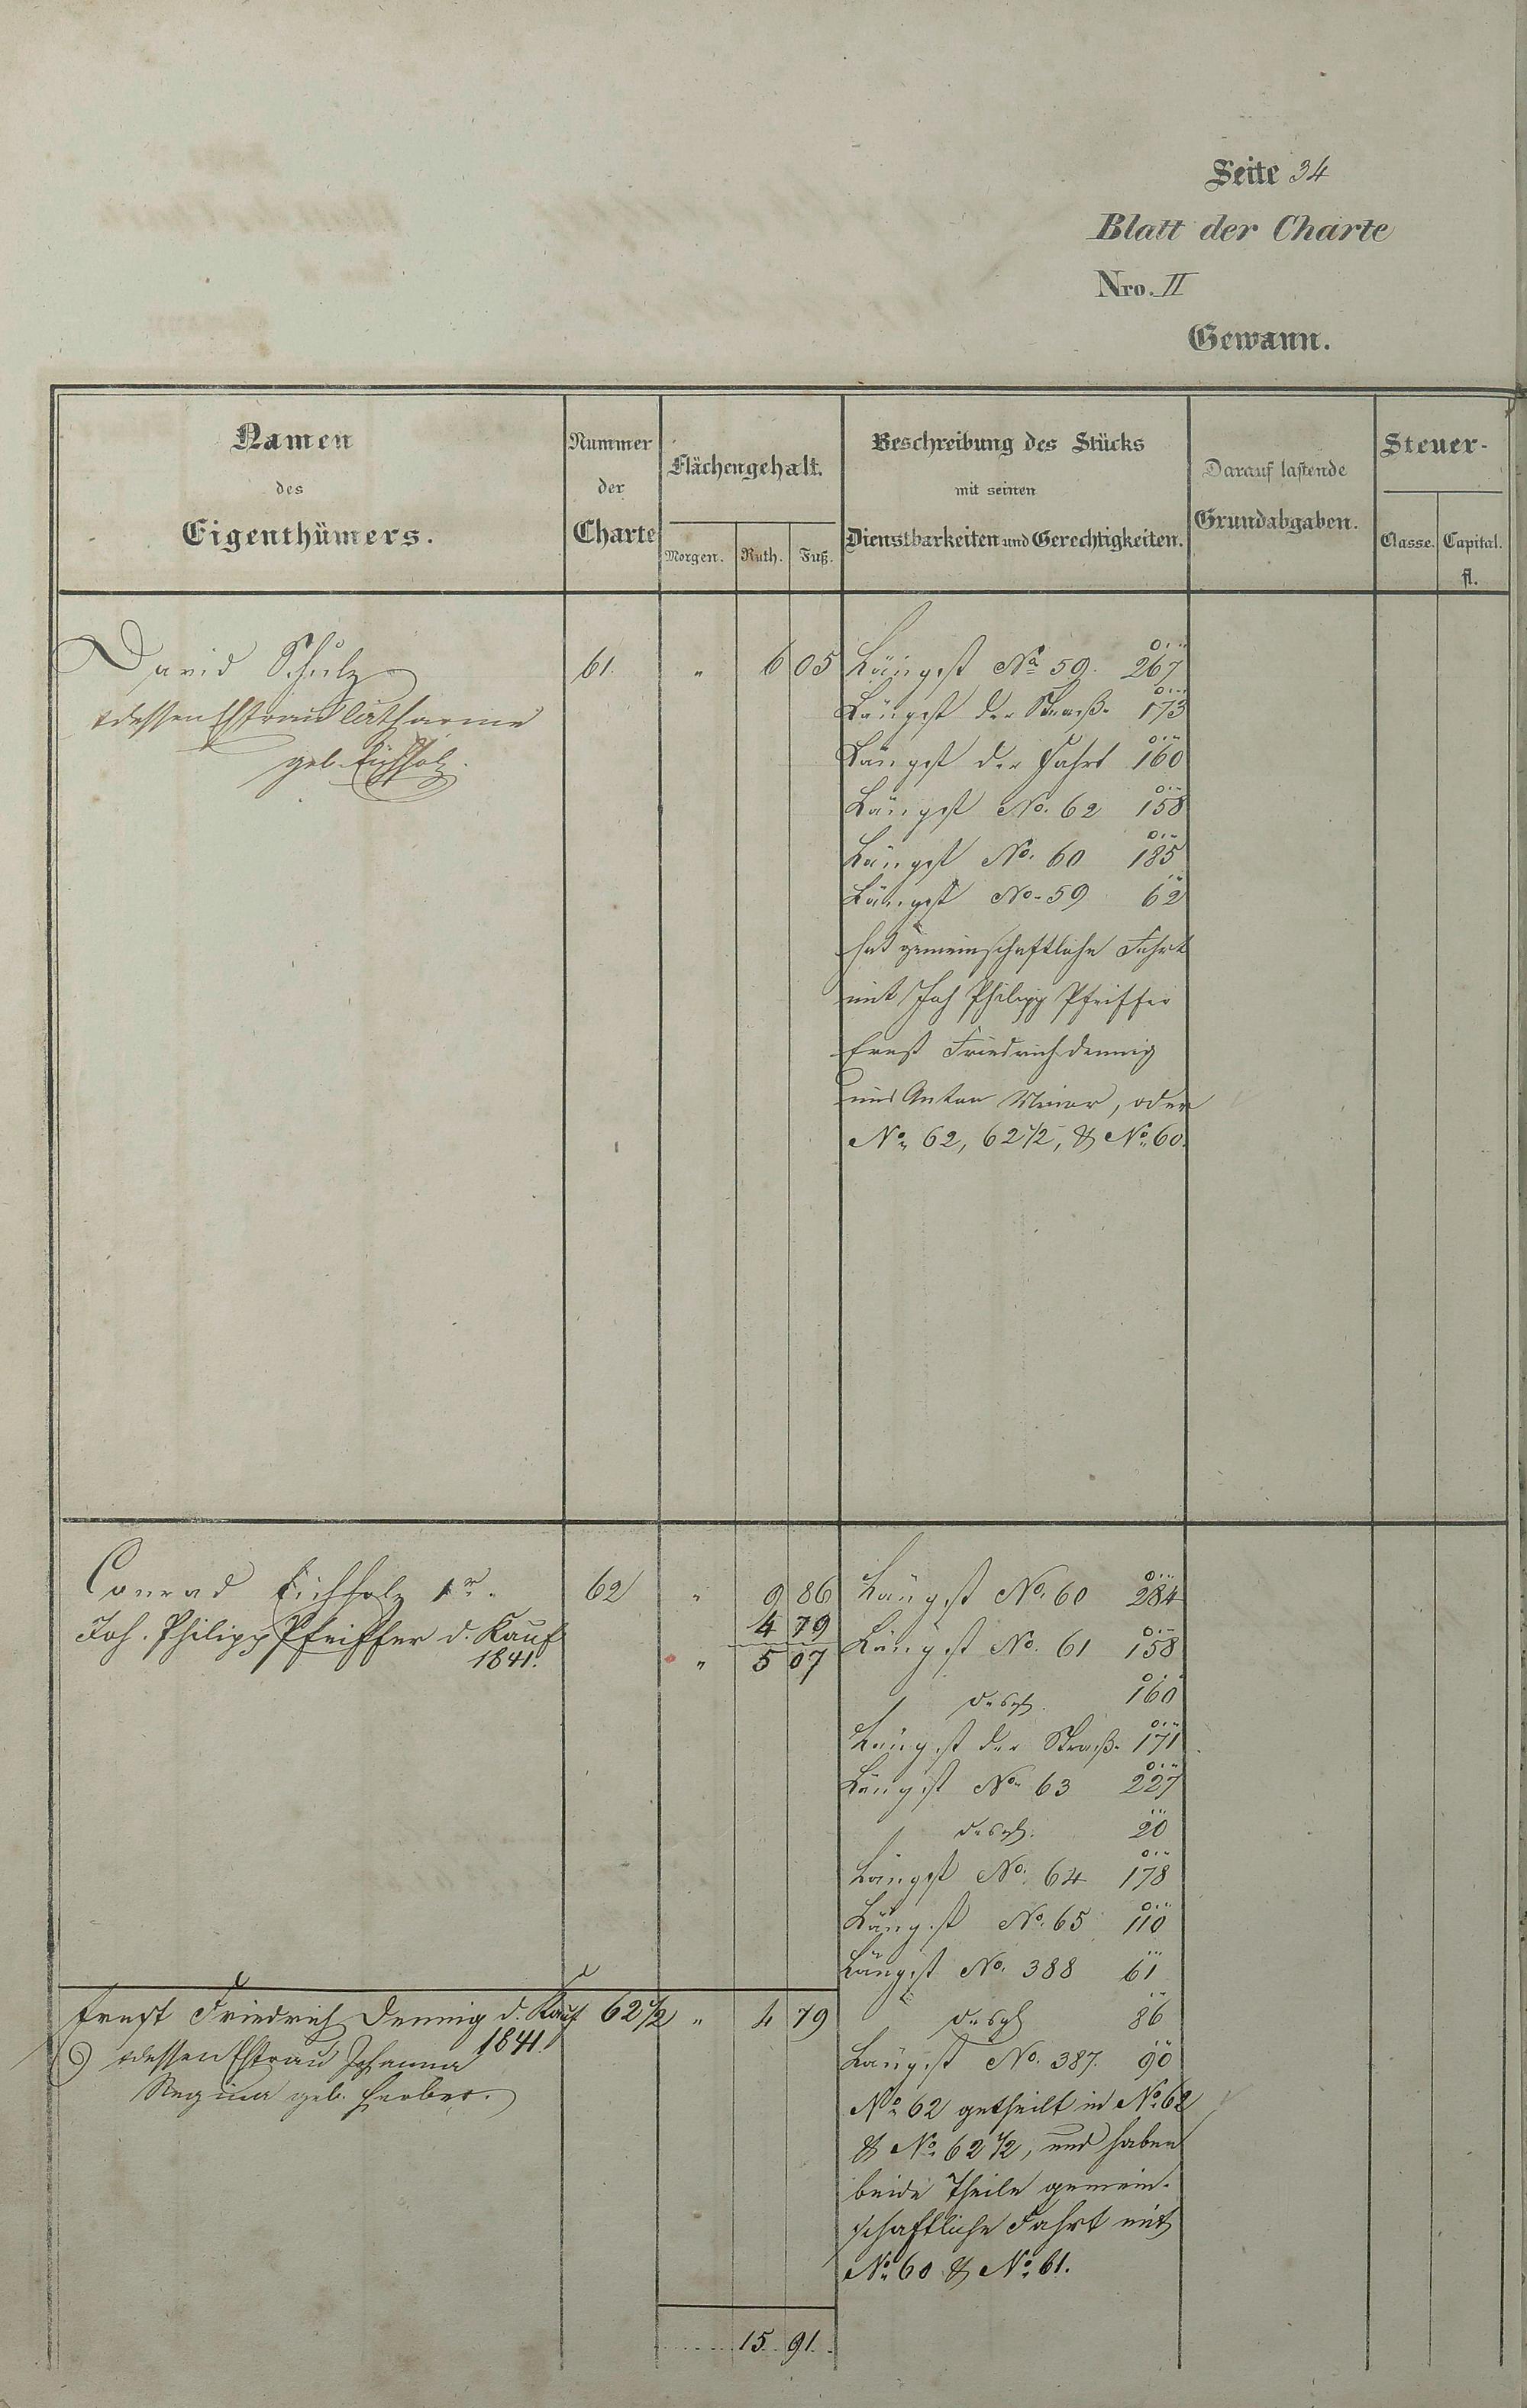 Seite 34
Blatt der Charte
Nro. II
Gewann.
Namen
des
Eigenthümers.
Nummer
der
Charte
Flächengehalt.
Morgen. Ruth. Fuß.
Beschreibung des Stücks
mit seinen
Dienstbarkeiten und Gerechtigkeiten.
Darauf lastende
Grundabgaben.
Steuer-
Classe. Capital.
fl.
David Schulz 61. " 6 05 Längst No 59. 267
dessen Ehefrau Catharine
geb. Eichholz.
Längst der Straße 173
Längst der Fahrt 160
Längst No. 62 158
Längst No. 60 185
Längst No. 59 62
hat gemeinschaftliche Fahrt
mit Joh Philipp Pfeiffer
Ernst Friedrich Dennig
und Anton, oder
No 62, 62 1/2, & No 60.
Conrad Eichholz 1r. 62 " 9 86 Längst No. 60 284
Joh. Philipp Pfeiffer d. Kauf 4 79
1841. " 5 07
Längst No. 61 158
desgl. 160
Längst der Straße 171
Längst No 63 227
desgl. 20
Längst No. 64 178
Längst No. 65 110
Längst No. 388 61
Ernst Friedrich Dennig d. Kauf 62 1/2 " 4 79 desgl 86
1841.
dessen Ehefrau Johanna
Regina geb. Herber.
Längst No. 387. 90
No 62 getheilt in No 62
& No 62 1/2, und haben
beide Theile gemein-
schaftliche Fahrt mit
No 60 & No 61.
15 91.